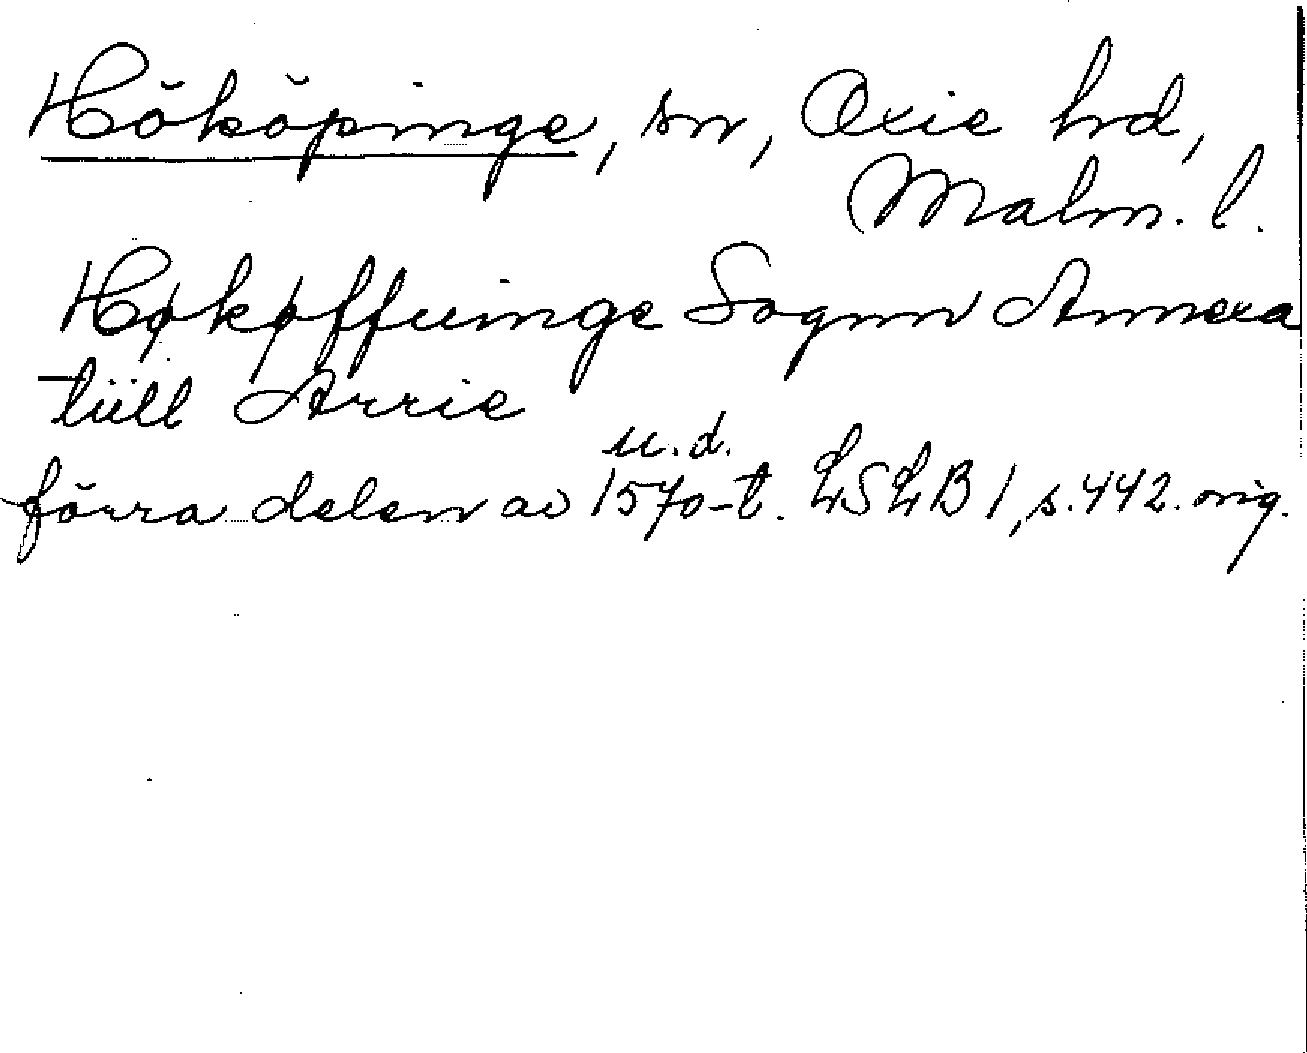 Hököpinge, sn, Oxie hrd,
Malm. l.
Høkøffuinge Sognn Annexa
tiill Arrie
u.d.
förra delen av 1570-t. LSLB 1, s. 442. orig.